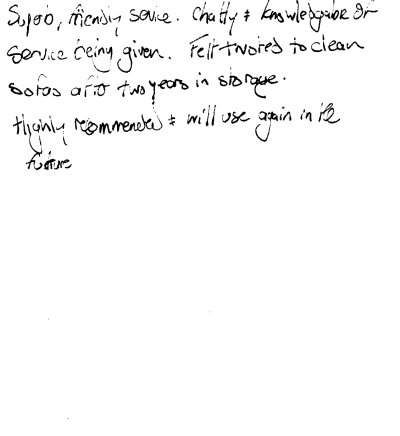 Superb, friendly service. Chatty & knowledgable of
service being given. Felt trusted to clean
sofas after two years in storage.
Highly recommended & will use again in the
future